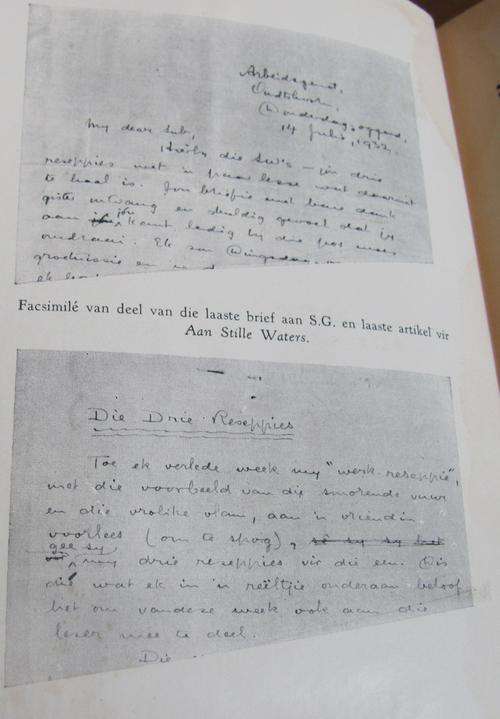 Arbeidsgenot,
Oudtshoorn,
Donderdagoggend,
14 Julie, 1932.
My dear Sub,
Hierby die S.W's — jou drie
reseppies met 'n paar lesse wat daaruit
te haal is. Jou briefie met baie dank
ontvang en skuldig gevoel dat jy
aan jou kant ledig by die pos moes
omdraai. Ek sou Dinsdag
Facsimilé van deel van die laaste brief aan S.G. en laaste artikel vir
Aan Stille Waters.
Die Drie Reseppies
Toe ek verlede week my "werk-reseppie",
met die voorbeeld van die smorende vuur
en die vrolike vlam, aan 'n vriendin
voorlees (om te spog), sê sy sy het
gee sy
my drie reseppies vir die een. Dis
dié wat ek in 'n reëltjie onderaan beloof
het om vandese week ook aan die
leser mee te deel.
Die